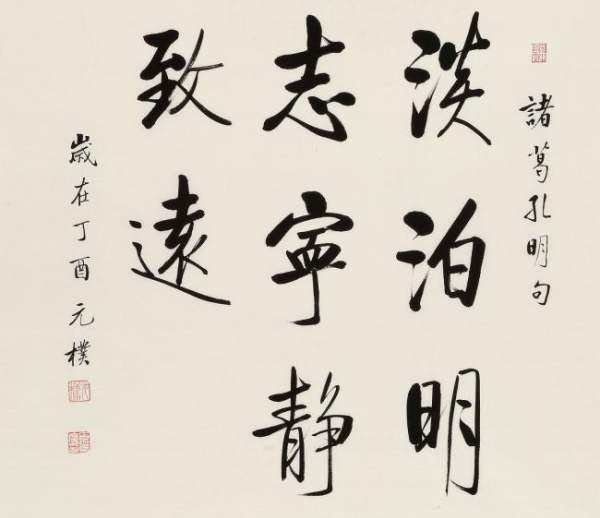 諸葛孔明句
淡泊明
志寧静
致遠
歲在丁酉元樸